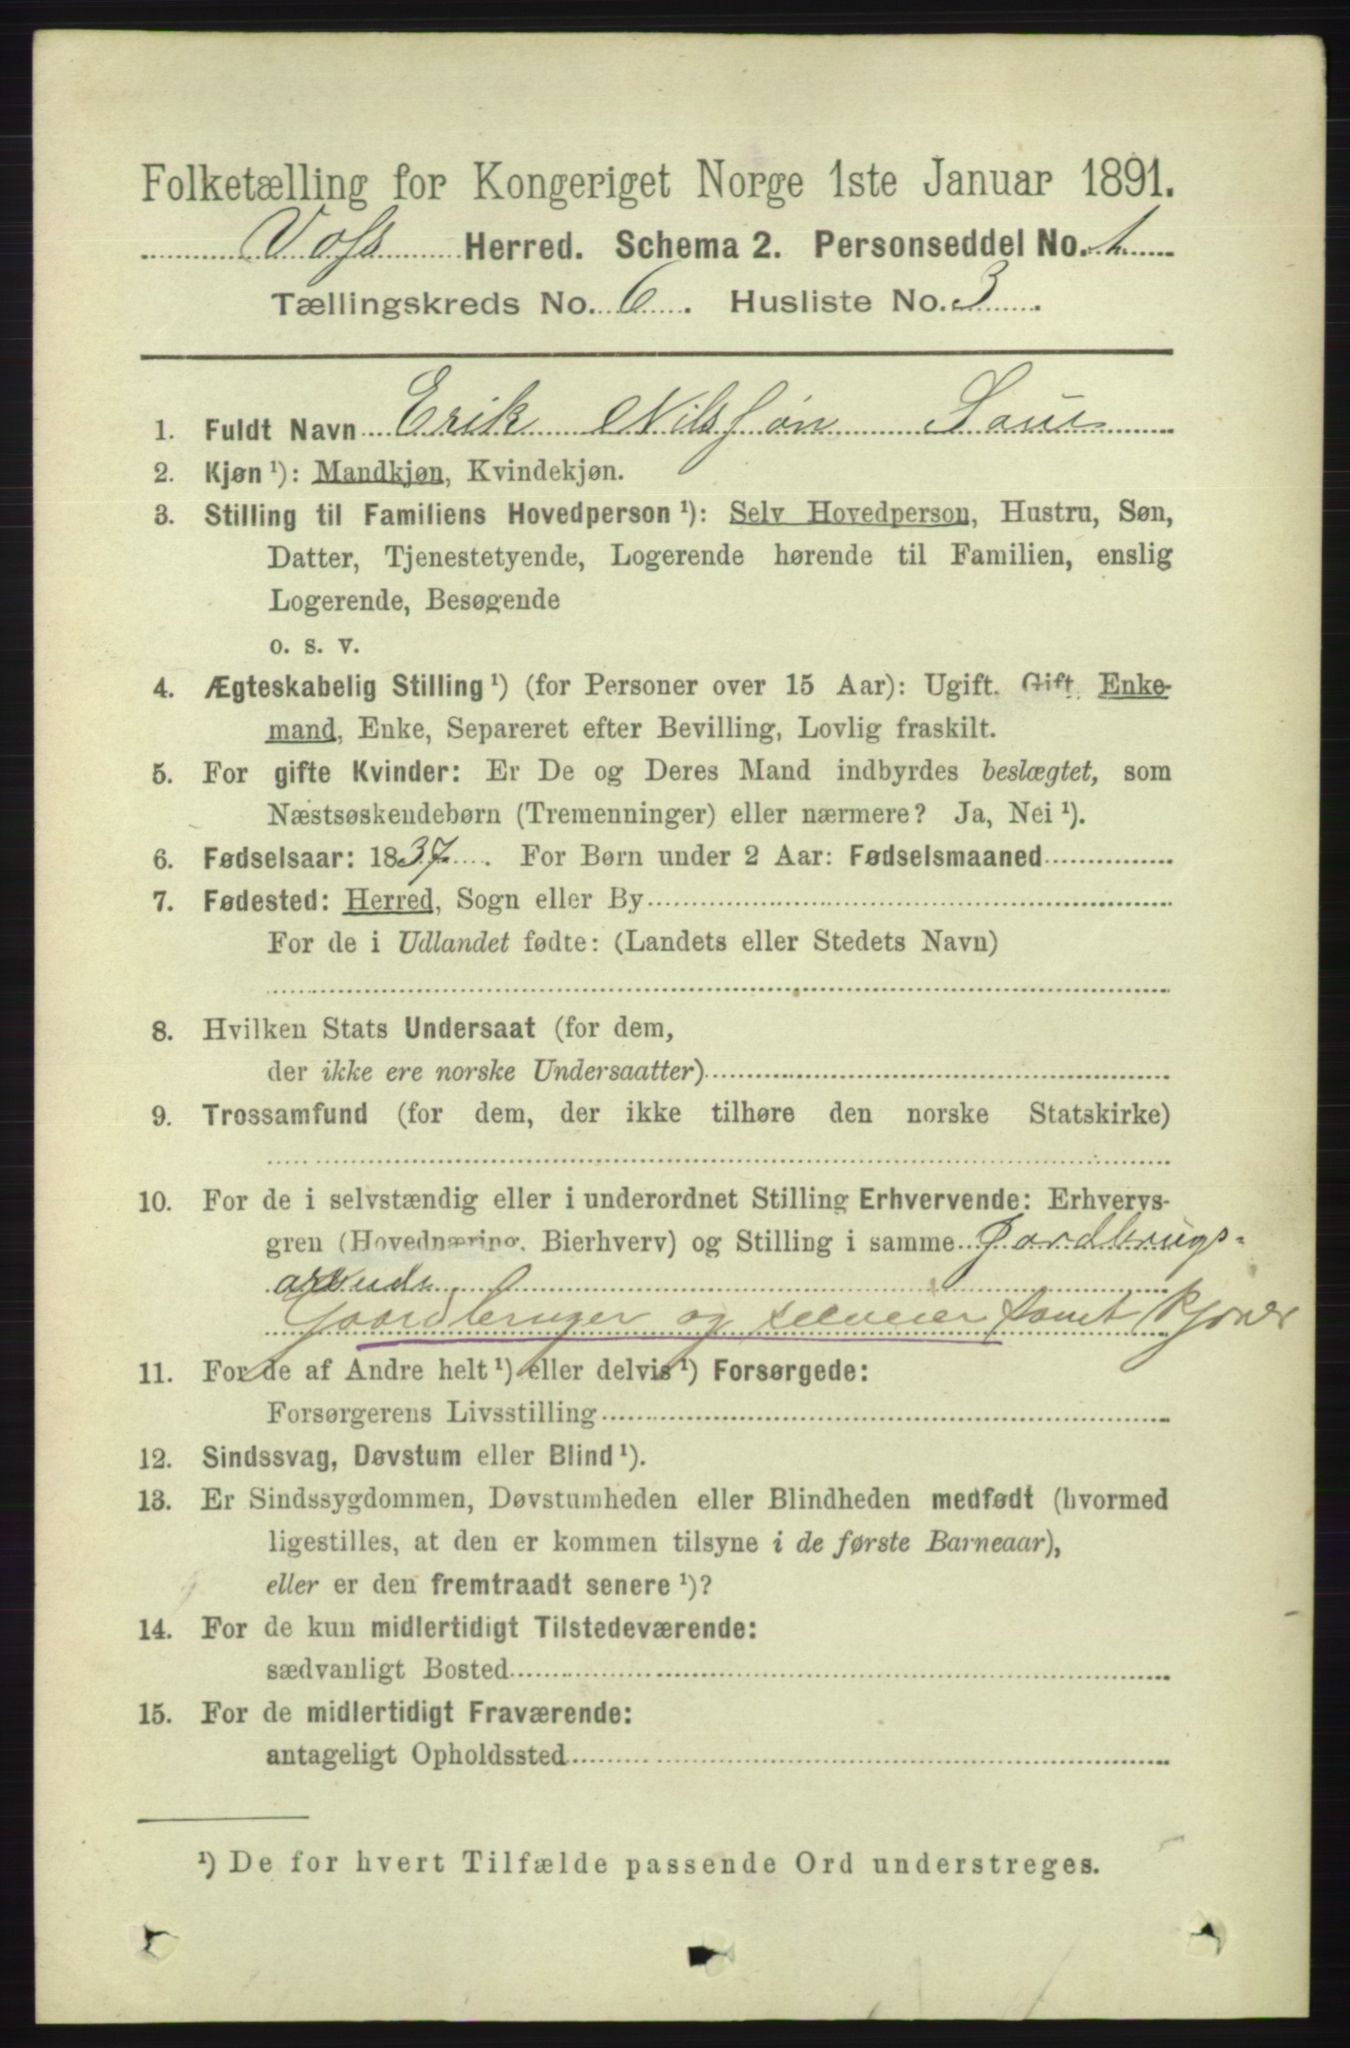 Folketælling for Kongeriget Norge 1ste Januar 1891.
Voss Herred. Schema 2. Personseddel No. 1
Tællingskreds No. 6. Husliste No. 3.
1. Fuldt Navn Erik Nilssøn Saue
2. Kjøn ¹): Mandkjøn, Kvindekjøn.
3. Stilling til Familiens Hovedperson ¹): Selv Hovedperson, Hustru, Søn,
Datter, Tjenestetyende, Logerende hørende til Familien, enslig
Logerende, Besøgende
o. s. v.
4. Ægteskabelig Stilling ¹) (for Personer over 15 Aar): Ugift. Gift. Enke-
mand, Enke, Separeret efter Bevilling, Lovlig fraskilt.
5. For gifte Kvinder: Er De og Deres Mand indbyrdes beslægtet, som
Næstsøskendebørn (Tremenninger) eller nærmere? Ja, Nei ¹).
6. Fødselsaar: 1837. For Børn under 2 Aar: Fødselsmaaned
7. Fødested: Herred, Sogn eller By
For de i Udlandet fødte: (Landets eller Stedets Navn)
8. Hvilken Stats Undersaat (for dem,
der ikke ere norske Undersaatter)
9. Trossamfund (for dem, der ikke tilhøre den norske Statskirke)
10. For de i selvstændig eller i underordnet Stilling Erhvervende: Erhvervs-
gren (Hovednæring, Bierhverv) og Stilling i samme Gardbrugs-
Gaardbruger og selveier samt
11. For de af Andre helt ¹) eller delvis ¹) Forsørgede:
Forsørgerens Livsstilling
12. Sindssvag, Døvstum eller Blind ¹).
13. Er Sindssygdommen, Døvstumheden eller Blindheden medfødt (hvormed
ligestilles, at den er kommen tilsyne i de første Barneaar),
eller er den fremtraadt senere ¹)?
14. For de kun midlertidigt Tilstedeværende:
sædvanligt Bosted
15. For de midlertidigt Fraværende:
antageligt Opholdssted
¹) De for hvert Tilfælde passende Ord understreges.